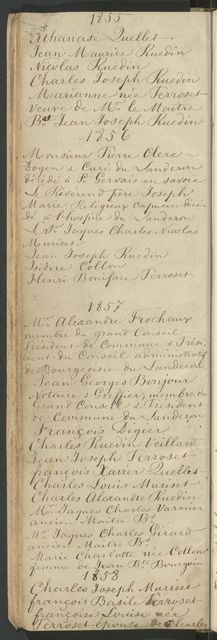 1855
Athanase Quellet
Jean Maurice Ruedin
Nicolas Ruedin
Charles Joseph Ruedin
Marianne née Perroset
Veuve de Mr le Maitre
Bst Jean Joseph Ruedin
1856
Monsieur Pierre Clerc
Doyen & Curé du Landeron
décédé à St Gervais en Savoie
Le Révérend Père Joseph
Marie Religieux Capucin décé
dé à l'hospice du Landeron
Jaques Charles Nicolas
Muriset
Jean Joseph Ruedin
Isidore Cotton
Henri Boniface Perroset
1857
Mr Alexandre Frochaux
membre du Grand Conseil
President de Commune & Prési
dent du Conseil administratif
de Bourgeoisie du Landeron
Jean Georges Bonjour
Notaire & Greffier, membre du
Grand Conseil & President
de Commune du Landeron
François Digier
Charles Ruedin Veillard
Jean Joseph Perroset
François Xavier Quellet
Charles Louis Muriset
Charles Alexandre Ruedin
Mr Jaques Charles Varnier
ancien Maitre Br
Mr Jaques Charles Girard
ancien Maitre Br
Marie Charlotte née Cotton
femme de Jean Bte Bourgoin
1858
Charles Joseph Muriset
François Basile Perroset
Françoise Louise née
Perroset épouse de Charles